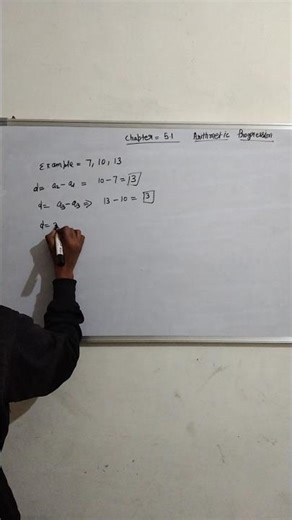 Chapter = 5.1 Arithmetic Progression
Example = 7, 10, 13
d = a₂ - a₁ = 10 - 7 = 3
d = a₃ - a₃ ⇒ 13 - 10 = 3
d = 3